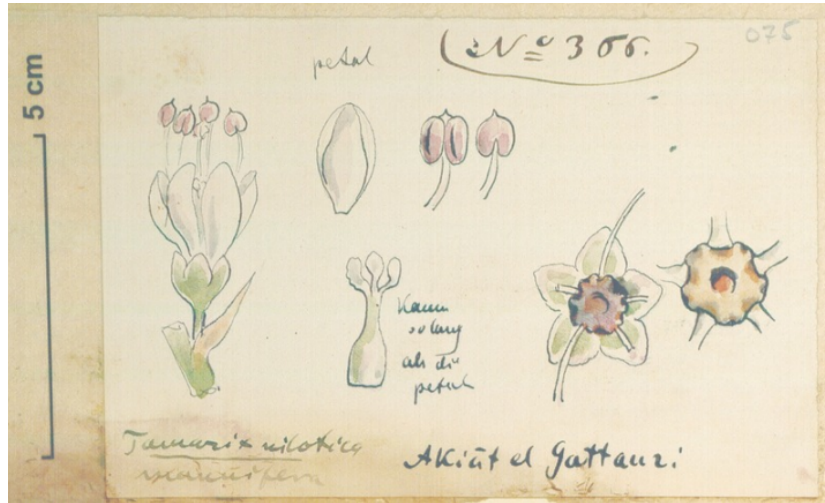 5 cm
No 366.
075
petal
Kaum
so lang
als die
petal
Tamarix nilotica
mannifera
Akiût el Gattauri